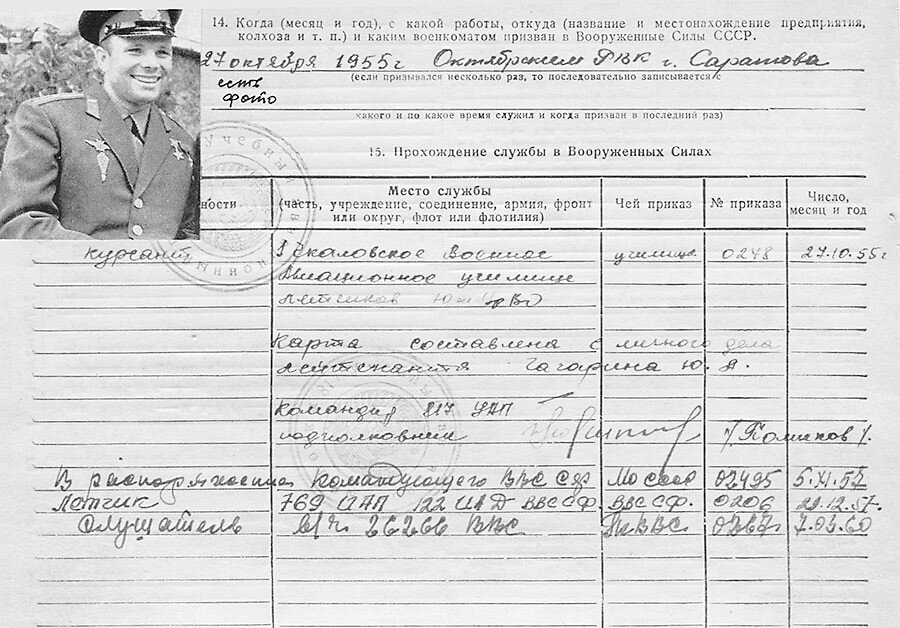 14. Когда (месяц и год), с какой работы, откуда (название и местонахождение предприятия,
колхоза и т. п.) и каким военкоматом призван в Вооруженные Силы СССР.
27 октября 1955 Октябрьским РВК г. Саратова
(если призывался несколько раз, то последовательно записывается с
есть
фото
какого и по какое время служил и когда призван в последний раз)
15. Прохождение службы в Вооруженных Силах
ности
Место службы
(часть, учреждение, соединение, армия, фронт
или округ, флот или флотилия)
Чей приказ
№ приказа
Число,
месяц и год
курсант Чкаловское Военное училища 0248 27.10.55г
Авиационное училище
летчиков
Карта составлена с личного дела
лейтенанта Гагарина Ю. А.
Командир УАП
подполковник
В распоряжении Командующего ВВС СФ МО СССР 02495 5.XI.57
Летчик 769 ИАП 122 ИАД ВВС СФ. ВВС СФ. 0206 29.12.57.
Слушатель в/ч. 26266 ВВС ВВС. 0267 7.03.60